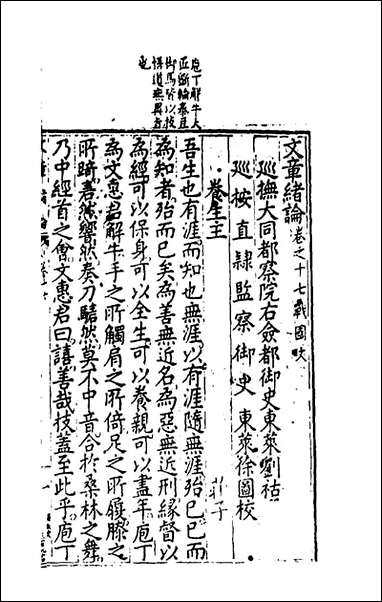 文章緒論卷之十七戰國文
巡撫大同都察院右僉都御史東萊劉祜
巡按直隸監察御史東萊徐圖校
養生主
莊子
吾生也有涯而知也無涯以有涯隨無涯殆已已而
為知者殆而已矣為善無近名為惡無近刑緣督以
為經可以保身可以全生可以養親可以盡年庖丁
為文惠君解牛手之所觸肩之所倚足之所履膝之
所踦砉然嚮然奏刀騞然莫不中音合於桑林之舞
乃中經首之會文惠君曰譆善哉技蓋至此乎庖丁
庖丁解牛大
匠斲輪秦豆
御馬皆以技
悟道無異旨
也